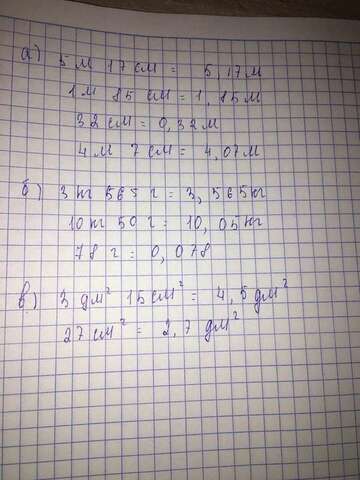 а) 5 м 17 см = 5,17 м
1 м 85 см = 1,85 м
32 см = 0,32 м
4 м 7 см = 4,07 м
б) 3 кг 565 г = 3,565 кг
10 кг 50 г = 10,05 кг
78 г = 0,078
в) 3 дм² 15 см² = 4,5 дм²
27 см² = 2,7 дм²